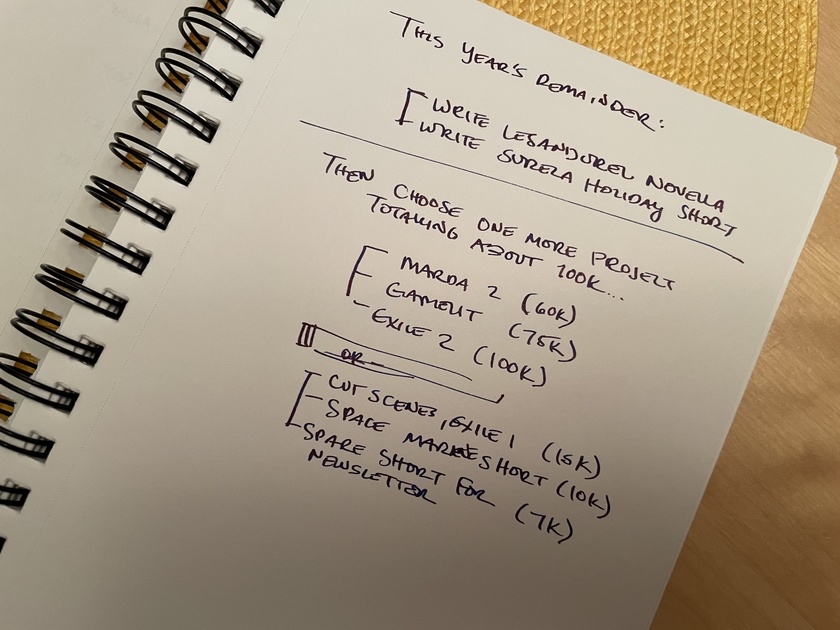 THIS YEAR'S REMAINDER:
WRITE LESANDUREL NOVELLA
WRITE SURELA HOLIDAY SHORT
THEN CHOOSE ONE MORE PROJECT
TOTALLING ABOUT 100K...
MARDA 2 (60K)
GAMELIT (75K)
EXILE 2 (100K)
OR
CUT SCENES, EXILE 1 (15K)
SPACE MARINE SHORT (10K)
SPARE SHORT FOR
NEWSLETTER (7K)